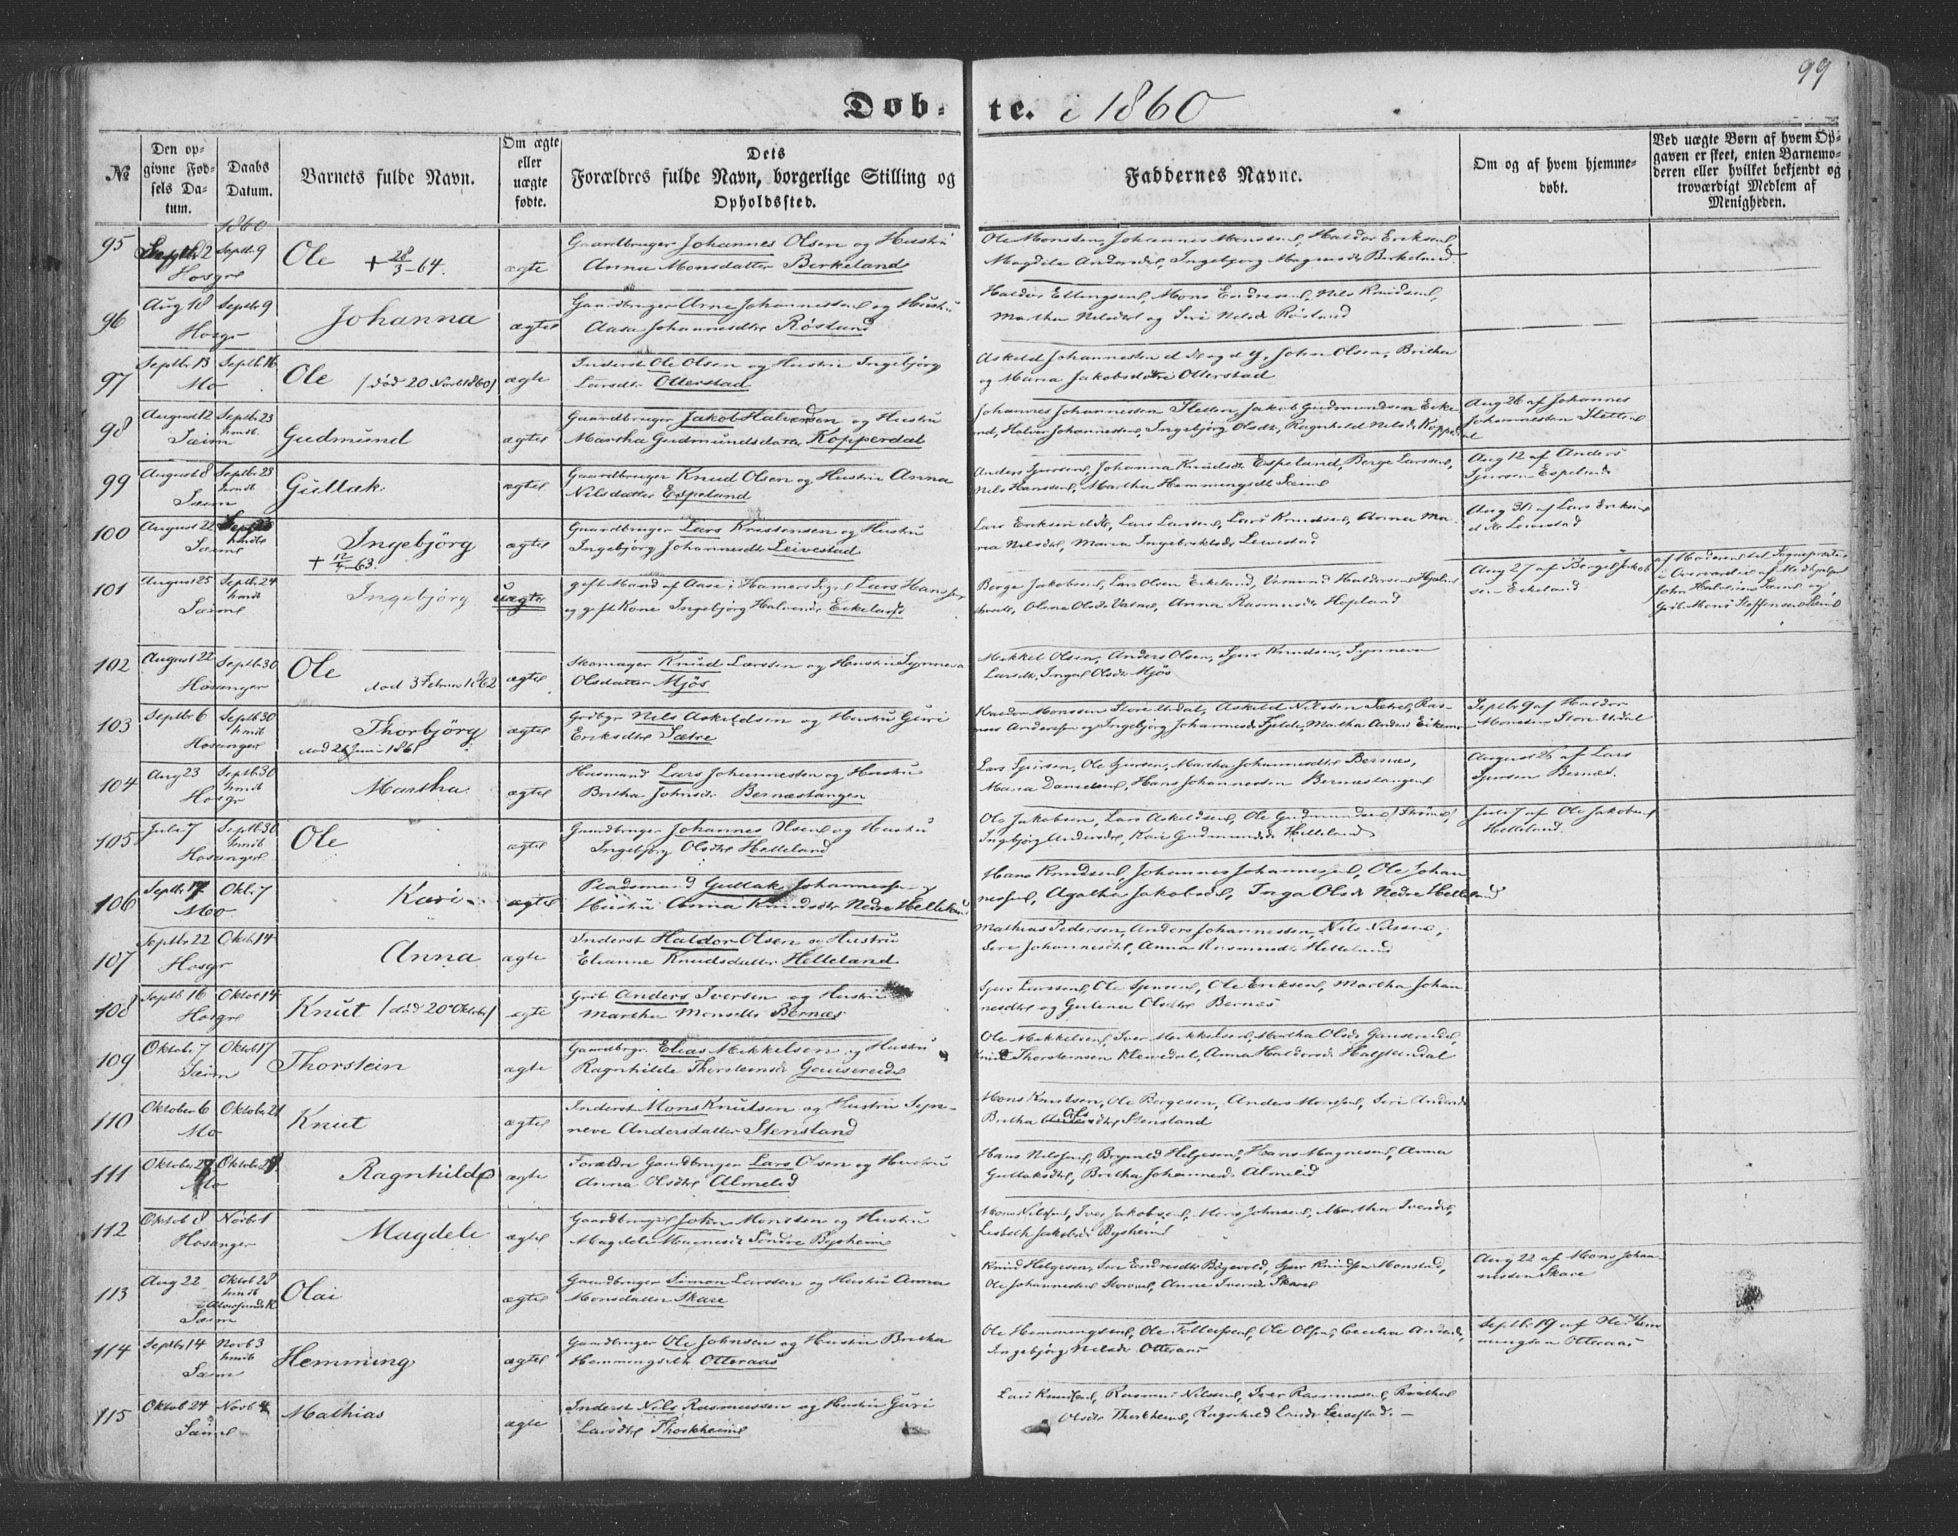 99
Døb- te. i 1860
№
Den op-
givne Fød-
sels Da-
tum.
Daabs
Datum.
Barnets fulde Navn.
Om ægte
eller
uægte
fødte.
Dets
Forældres fulde Navn, borgerlige Stilling og
Opholdssted.
Faddernes Navne.
Om og af hvem hjemme-
døbt.
Ved uægte Børn af hvem Op-
gaven er skeet, enten Barnemo-
deren eller hvilket bekjendt og
troværdigt Medlem af
Menigheden.
1860
95 Septbr 2 Septbr 9 Ole + 28/3-64. ægte Gaardbruger Johannes Olsen og Hustru
Hosgr Anna Monsdatter Birkeland
Ole Monsen, Johannes Monssen, Haldor Eriksen,
Magdele Andersdtr, Ingebjorg Magnesdtr Birkeland
96 Aug 18 Septbr 9 Johanna ægte Gaardbruger Arne Johannessen og Hustru
Hosgr Aasa Johannesdtr Röslund
Haldor Ellingsen, Mons Endresen, Nils Knudsen,
Martha Nilsdtr og Siri Nilsdr Röslund
97 Septbr 13 Septbr 16 Ole /död 20 Novbr 1860/ ægte Inderst Ole Olsen og Hustru Ingebjörg
Mo Larsdtr Otterstad
Askeld Johannessen, John Olsen, Britha
og Maria Jakobsdøtre Otterstad
98 August 12 Septbr 23 Gudmund ægte Gaardbruger Jakob Halvorsen og Hustru
Sæim hmdb Martha Gudmundsdatter Kopperdal
Johannes Johannessen Sletten, Jakob Gudmundsen Eike-
land, Halvor Johannessen, Ingebjörg Olsdtr, Ragnhild Nilsdr Kopperdal
Aug 26 af Johannes
Johannessen Slette
99 August 8 Septbr 23 Gullak ægte Gaardbruger Knud Olsen og Hustru Anna
Sæim hmdb Nilsdatter Espeland
Anders Sjursen, Johanna Knudsdr Espeland, Berge Larssen,
Nils Hanssen, Martha Hemmingsdtr Sæim
Aug 12 af Anders
Sjursen Espeland
100 August 22 Septbr 23 Ingebjörg ægte Gaardbruger Lars Kristensen og Hustru
Sæim hmdb + 12/7-63. Ingebjörg Johannesdtr Leivestad
Lars Eriksen, Lars Larsen, Lars Knudsen, Anna Ma-
ria Nilsdtr, Maria Ingebrikdtr Leivestad
Aug 30 af Lars Eriksen
Leivestad
101 August 25 Septbr 24 Ingebjörg uægte gift Mand af Aase i Hamers Sogn Lars Hanssen
Sæim hmdb og gift Kone Ingebjörg Halvorsdr Eikeland
Berge Jakobsen, Lars Olsen Eikeland, Vemund Haldorsen
Oline Olsdr, Anna Rasmusdtr Hopland
Aug 27 af Berge Jakob
sen Eikeland
af Moderen til Sognepræsten
i Overværelse af
John Halvorsen Sæim og
Grbr Mons Steffensen Sæim
102 August 22 Septbr 30 Ole ægte Skomager Knud Larssen og Hustru Synneva
Hosanger död 3 Februar 1862 Olsdatter Mjös
Mikkel Olsen, Anders Olsen, Sjur Knudsen, Synneva
Larsdtr, Inga Olsdtr Mjös
103 Septbr 6 Septbr 30 Thorbjörg ægte Grdbgr Nils Askildsen og Hustru Guri
Hosanger hmdb död 21 Juni 1861 Eriksdtr Sætre
Haldor Monssen Store Urdal, Askild Nilssen Sætre, Ras-
mus Anderssen og Ingebjörg Johannesdr Fjelde, Martha Andersdr Eikemo
Septbr 9 af Haldor
Monssen Store Urdal
104 Aug 23 Septbr 30 Martha ægte Husmand Lars Johannessen og Hustru
Hosgr hmdb Britha Johnsdr Bernæstangen
Lars Sjursen, Ole Sjursen, Martha Johannesdtr Bernæs,
Maria Danielsdr, Hans Johannessen Bernæstangen
August 26 af Lars
Sjursen Bernæs.
105 Juli 7 Septbr 30 Ole ægte Gaardbruger Johannes Olsen og Hustru
Hosanger hmdb Ingebjörg Olsdtr Helleland
Ole Jakobsen, Lars Askildsen, Ole Gudmundsen
Ingebjörg Andersdr, Kari Gudmundsdr Helleland
Juli 7 af Ole Jakobsen
Helleland.
106 Septbr 17 Oktb 7 Kari ægte Pladsmand Gullak Johannessen og
Mo Hustru Anna Knudsdtr Nedre Helleland
Hans Knudsen, Johannes Johannessen, Ole Johan
nessen, Agatha Jakobsdr, Inga Olsdr Nedre Helleland
107 Septbr 22 Oktb 14 Anna ægte Inderst Haldor Olsen og Hustru
Hosgr Elianne Knudsdatter Helleland
Mathias Pedersen, Anders Johannessen, Nils Nilssen,
Siri Johannesdtr, Anna Rasmusdtr Helleland
108 Septb 16 Oktob 14 Knut /död 20 Oktbr/ ægte Grdb Anders Iversen og Hustru
Hosgr Martha Monsdtr Bernæs
Sjur Larssen, Ole Sjursen, Ole Eriksen, Martha Johan
nesdtr og Gurina Olsdtr Bernæs
109 Oktob 7 Oktb 17 Thorstein ægte Gaardbrgr. Elias Mikkelsen og Hustru
Sæim Ragnhilde Thorsteinsdr Gaustereide
Ole Mikkelsen, Iver Mikkelsen, Martha Olsdr Gaustereide,
Knud Thorsteinsen Kleivdal, Anna Haldorsdr
110 Oktober 6 Oktobr 21 Knut ægte Inderst Mons Knutsen og Hustru Syn-
Mo neve Andersdatter Stensland
Mons Knutsen, Ole Bergesen, Anders Monsen, Siri Andersdr
Britha Olsdtr Stensland
111 Oktober 27 Oktober 28 Ragnhilde ægte Forældre Gaardbruger Lars Olsen og Hustru
Mo Anna Olsdtr Almelid
Hans Nilssen, Brynild Helgesen, Hans Magnesen, Anna
Gullaksdtr, Britha Johannesdr Almelid
112 Oktob 8 Novbr 1 Magdele ægte Gaardbruger John Monssen og Hustru
Hosanger Magdele Magnesdr Söndre Bysheim
Mons Nilsen, Iver Jakobsen, Mons Johnsen, Martha Iversdr,
Lisbeth Jakobsdr Bysheim
113 Aug 22 Oktob 28 Olai ægte Gaardbruger Simon Larssen og Hustru Anna
hmdb i Alversunds K. Monsdatter Skare
Sæim
Knud Helgesen, Siri Endresdtr, Sjur Knudsen Monstad,
Ole Johannessen, Anne Iversdr Skare
Aug 22 af Mons Johan-
nessen Skare
114 Septbr 14 Novb 3 Hemming ægte Gaardbruger Ole Johnsen og Hustru Britha
Sæim hmdb Hemmingsdtr Otteraas
Ole Hemmingsen, Ole Tollefsen, Ole Olsen, Cecilia Andersdr,
Ingebjörg Nilsdr Otteraas
Septbr 19 af Ole Hem
mingsen Otteraas
115 Oktob 24 Novb 4 Mathias ægte Inderst Nils Rasmussen og Hustru Guri
Sæim Larsdtr Thoskheim
Lars Knutsen, Rasmus Nilssen, Iver Rasmussen, Britha
Olsdtr Thoskheim, Ragnhild Larsdr Leivestad. –